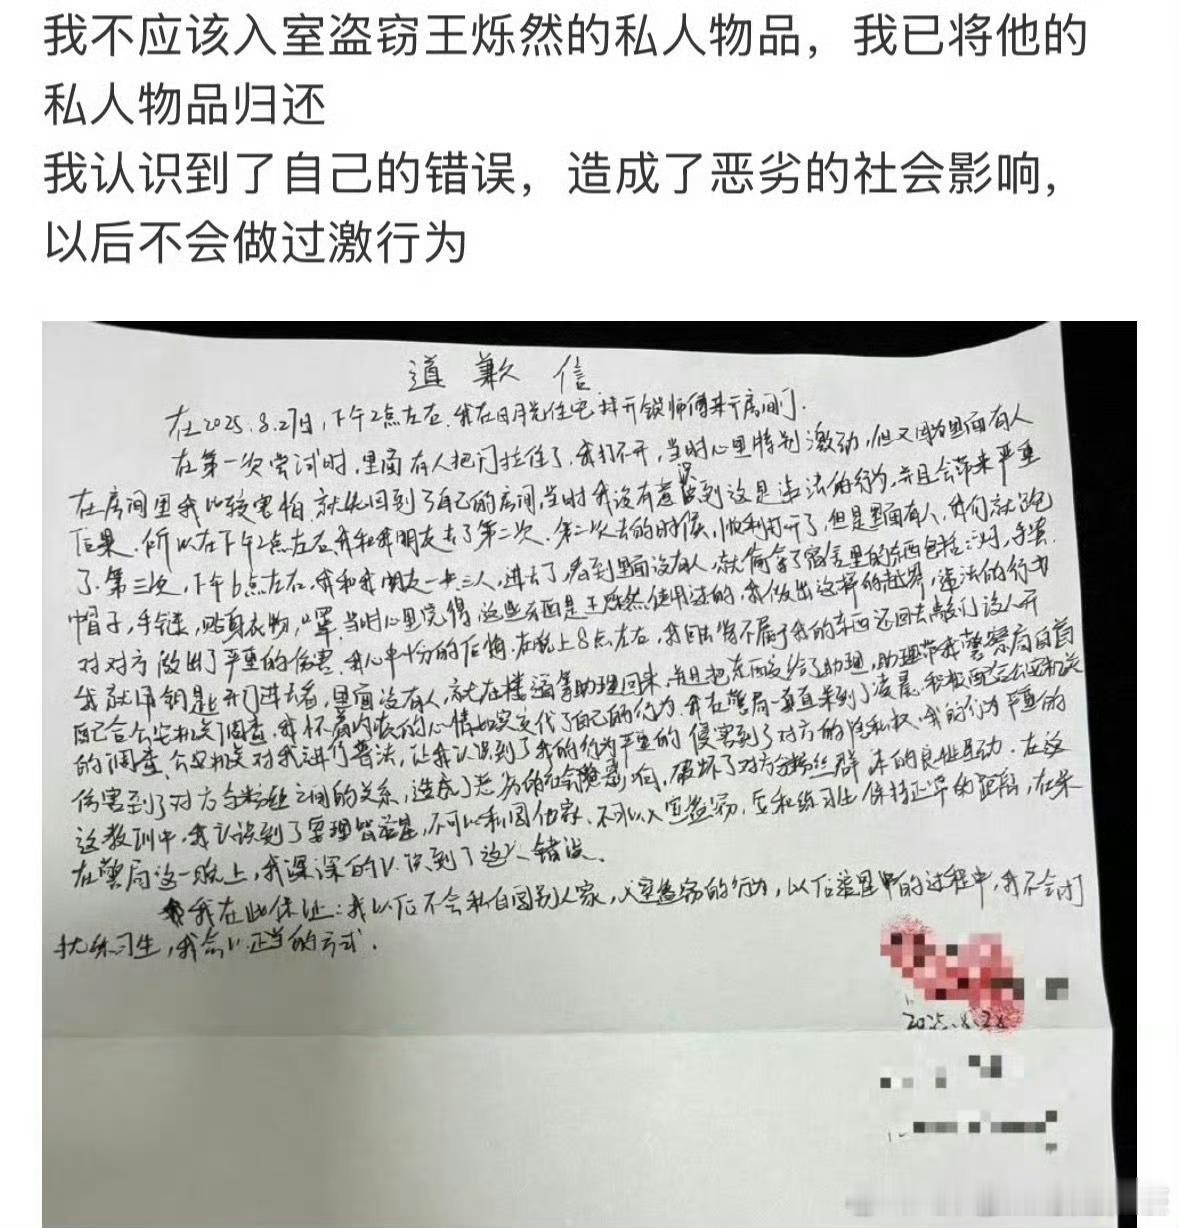 我不应该入室盗窃王烁然的私人物品，我已将他的
私人物品归还
我认识到了自己的错误，造成了恶劣的社会影响，
以后不会做过激行为
道歉信
在2025.8.27日，下午2点左右，我在日月光住宅找开锁师傅来开房间门．
在第一次尝试时，里面有人把门拉住了，我打不开，当时心里特别激动，但又因为里面有人
在房间里我比较害怕，就先回到了自己的房间，当时我没有意识到这是违法的行为，并且会带来严重
后果．所以在下午2点左右我和我朋友去了第二次．第二次去的时候，顺利打开了，但是里面有人，我们就跑
了．第三次，下午6点左右．我和我朋友一共三人，进去了，看到里面没有人，就偷拿了宿舍里的东西包括：
帽子，手链，贴身衣物，口罩．当时心里觉得，这些东西是王烁然使用过的，我做出这样的越界，违法的行为
对对方做出了严重的伤害．我心中十分的后悔．在晚上8点左右，我回去将不属于我的东西还回去敲门没人开
我就用钥匙开门进去看，里面没有人，就在楼道等助理回来，并且把东西交给了助理，助理带我警察局自首
配合公安机关调查．我怀着内疚的心情如实交代了自己的行为．我在警局一直呆到了凌晨．积极配合公安机关
的调查．公安机关对我进行普法，让我认识到了我的行为严重的侵害到了对方的隐私权．我的行为严重的
伤害到了对方与粉丝之间的关系，造成了恶劣的社会影响，破坏了对方与粉丝群体的良性互动．在这
这教训中，我认识到了要理智追星，不可以私闯他家，不可以入室盗窃，应和练习生保持正常的距离，在来
在警局这一晚上，我深深的认识到了这个错误．
我在此保证：我以后不会私自闯别人家，入室盗窃的行为，以后追星中的过程中，我不会打
扰练习生，我会以正当的方式．
2025.8.28